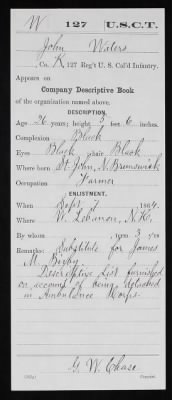 W | 127 | U.S.C.T.
John Waters
Co. K, 127 Reg't U. S. Col'd Infantry.
Appears on
Company Descriptive Book
of the organization named above.
DESCRIPTION.
Age 26 years; height 5 feet 6 inches.
Complexion Black
Eyes Black; hair Black
Where born St John, N. Brunswick
Occupation Farmer
ENLISTMENT.
When Sept 2, 1864.
Where W. Lebanon, N.H.
By whom ; term 3 y'rs
Remarks: Substitute for James
M. Bigby.
Descriptive List furnished
on account of being detached
in Ambulance Corps.
G. W. Chase
Copyist.